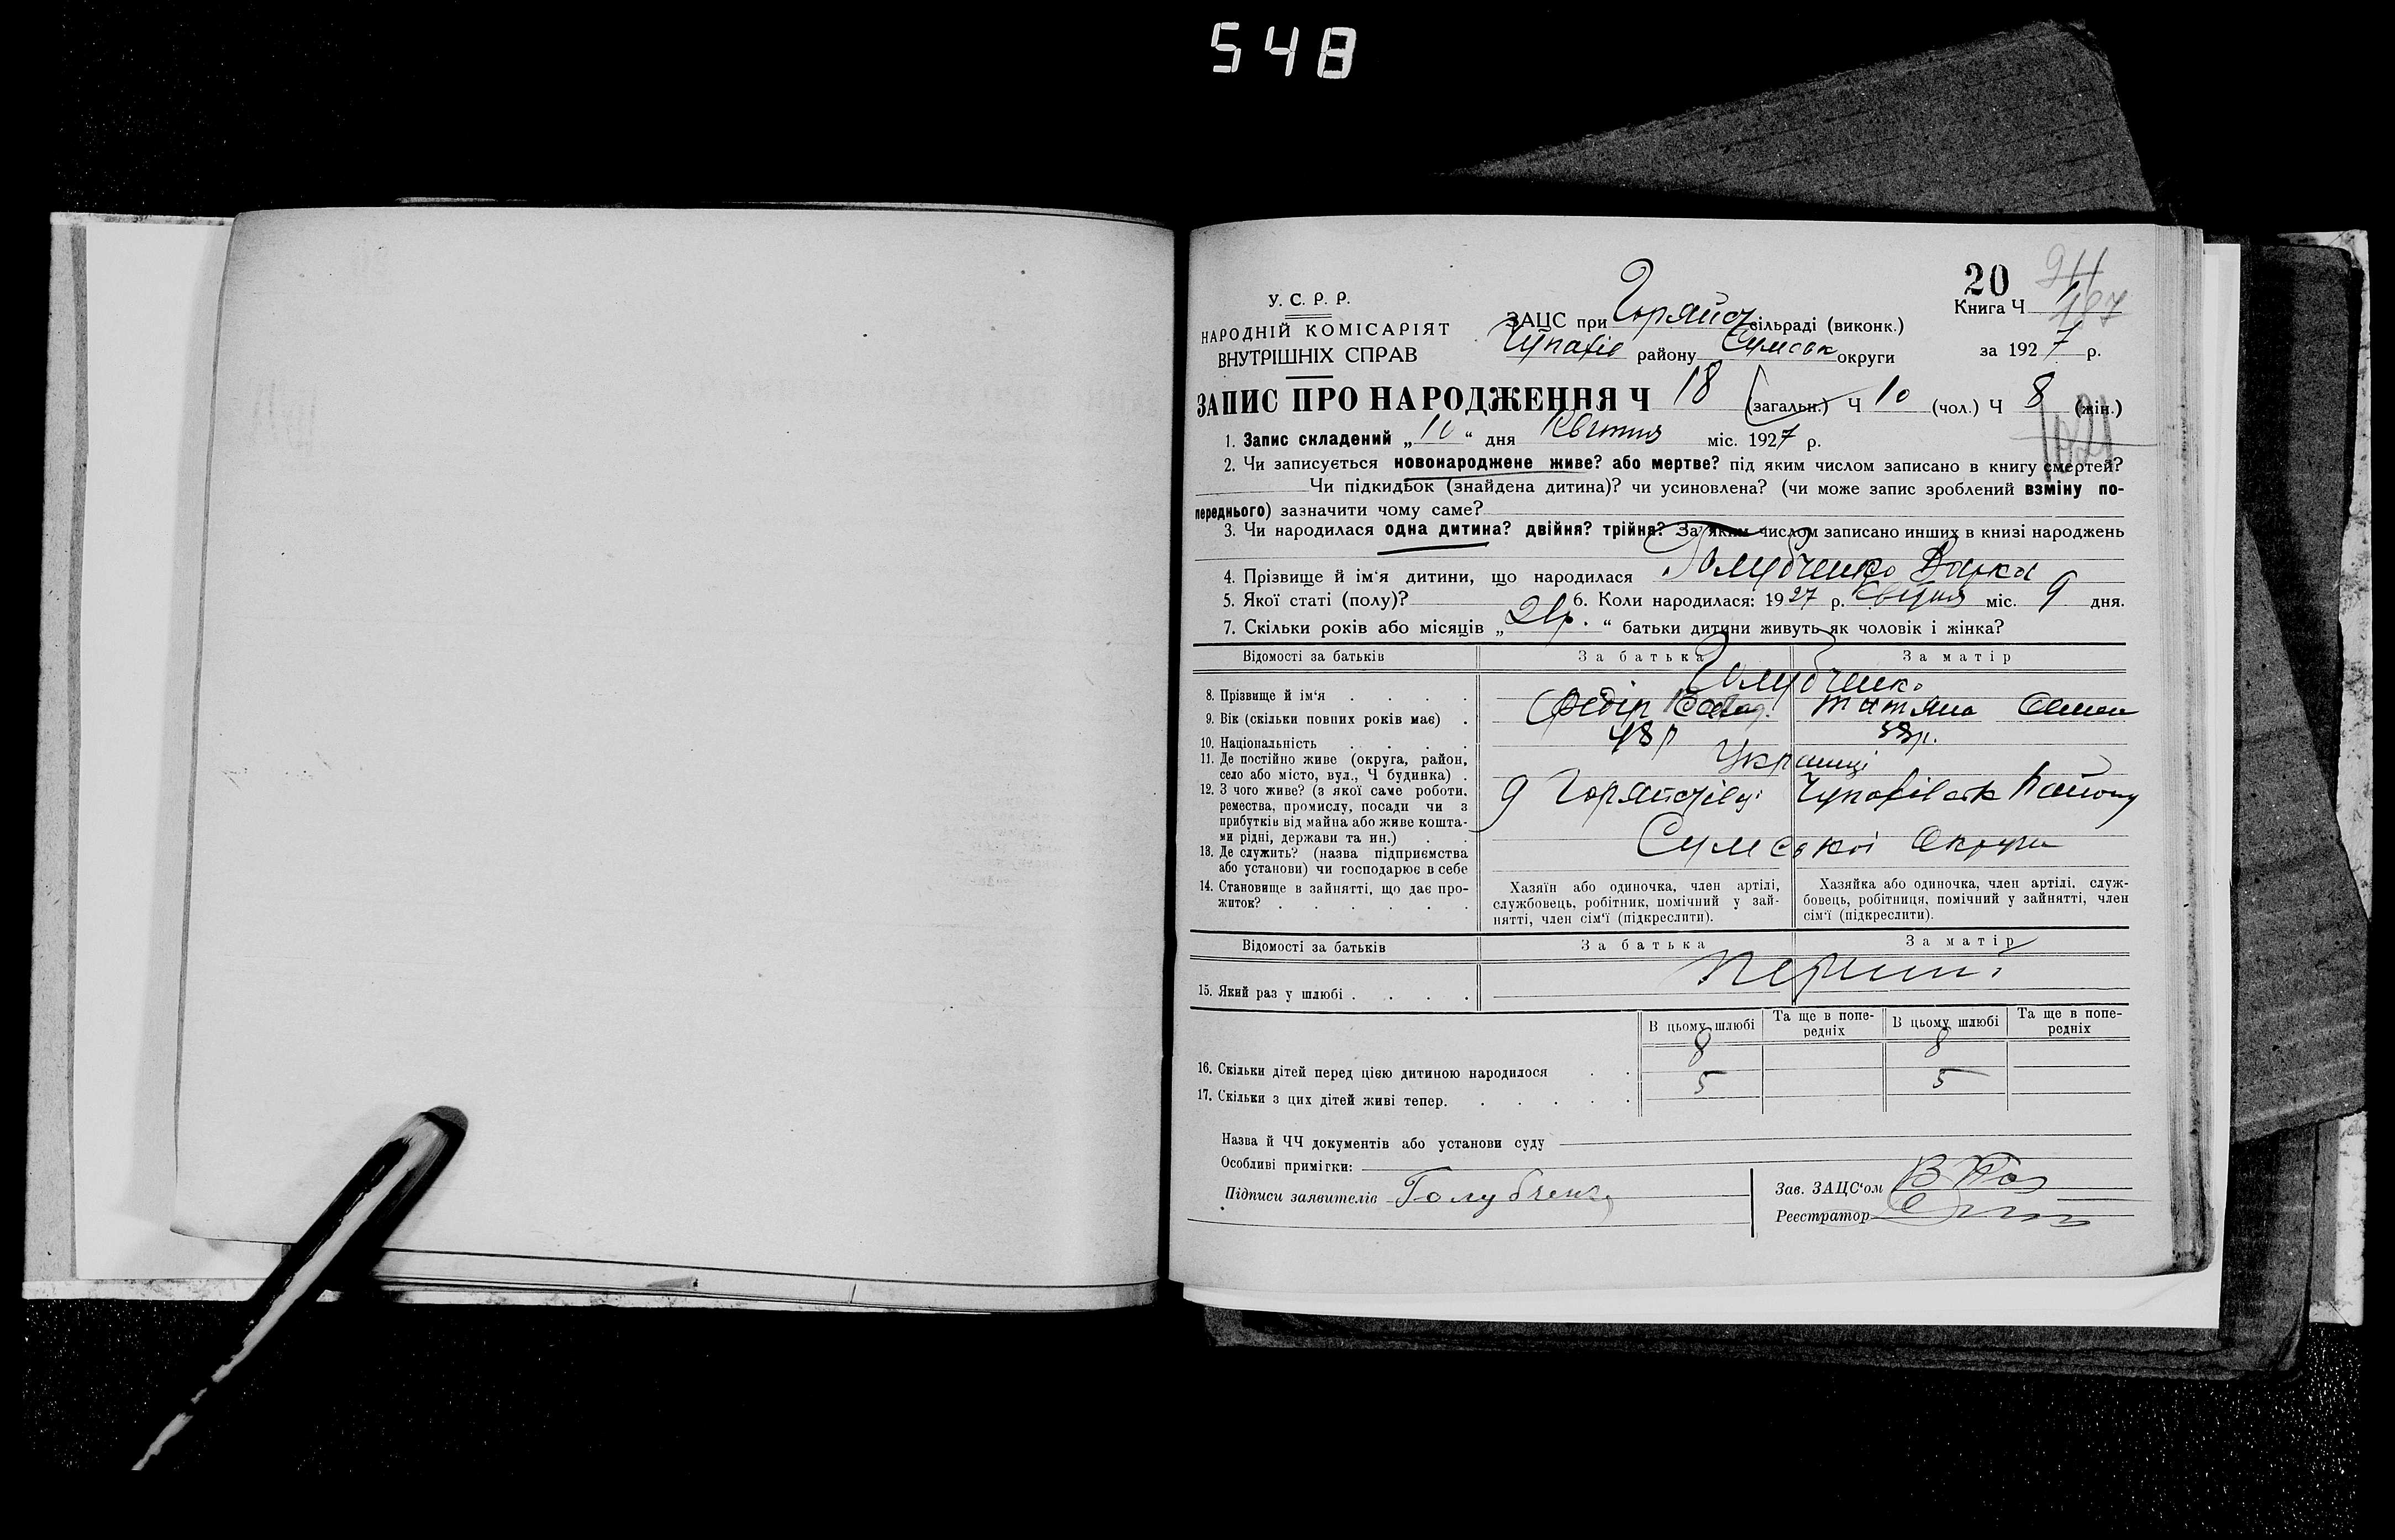 548
20
У. С. Р. Р.
НАРОДНІЙ КОМІСАРІЯТ
ВНУТРІШНІХ СПРАВ
ЗАЦС при сільраді (виконк.)
району Сумськ округи
Книга Ч
за 1927 р.
ЗАПИС ПРО НАРОДЖЕННЯ Ч 18 (загальн.) Ч 10 (чол.) Ч 8 (жін.)
1. Запис складений „ “ дня Квітня міс. 1927 р.
2. Чи записується новонароджене живе? або мертве? під яким числом записано в книгу смертей?
Чи підкидьок (знайдена дитина)? чи усиновлена? (чи може запис зроблений взміну по-
переднього) зазначити чому саме?
3. Чи народилася одна дитина? двійня? трійня? За яким числом записано инших в книзі народжень
4. Прізвище й ім‘я дитини, що народилася Голубченко Варка
5. Якої статі (полу)? 6. Коли народилася: 1927 р. Квітня міс. 9 дня.
7. Скільки років або місяців „ “ батьки дитини живуть як чоловік і жінка?
Відомості за батьків За батька За матір
8. Прізвище й ім‘я Голубченко
Федір Татяна Семен
9. Вік (скільки повних років має) 48р 38р.
10. Національність Українці
11. Де постійно живе (округа, район,
село або місто, вул., Ч будинка)
12. З чого живе? (з якої саме роботи,
ремества, промислу, посади чи з
прибутків від майна або живе кошта-
ми рідні, держави та ин.)
Сумської Округи
13. Де служить? (назва підприємства
або установи) чи господарює в себе
14. Становище в зайнятті, що дає про-
житок?
Хазяїн або одиночка, член артілі,
службовець, робітник, помічний у зай-
нятті, член сім‘ї (підкреслити).
Хазяйка або одиночка, член артілі, служ-
бовець, робітниця, помічний у зайнятті, член
сім‘ї (підкреслити).
Відомості за батьків За батька За матір
15. Який раз у шлюбі перший
В цьому шлюбі Та ще в попе-
редніх В цьому шлюбі Та ще в попе-
редніх
16. Скільки дітей перед цією дитиною народилося 8 8
17. Скільки з цих дітей живі тепер. 5 5
Назва й ЧЧ документів або установи суду
Особливі примітки:
Підписи заявителів Голубченко
Зав. ЗАЦС‘ом
Реєстратор